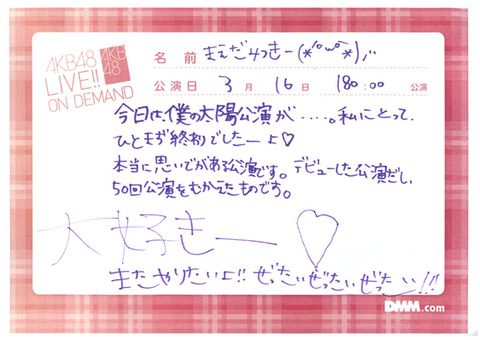 AKB48
LIVE!!
ON DEMAND
AKB
48
名 前 まえだみつきー(*´ω`*)ﾉ
公演日 3 月 16 日 180:00 公演
今日は、僕の太陽公演が.....。私にとって、
ひとまず終わりでしたーよ♡
本当に思いでがある公演です。デビューした公演だし、
50回公演をむかえたものです。
大好きー ♡
またやりたいよ!! ぜったいぜったいぜったーい!!!
DMM.com